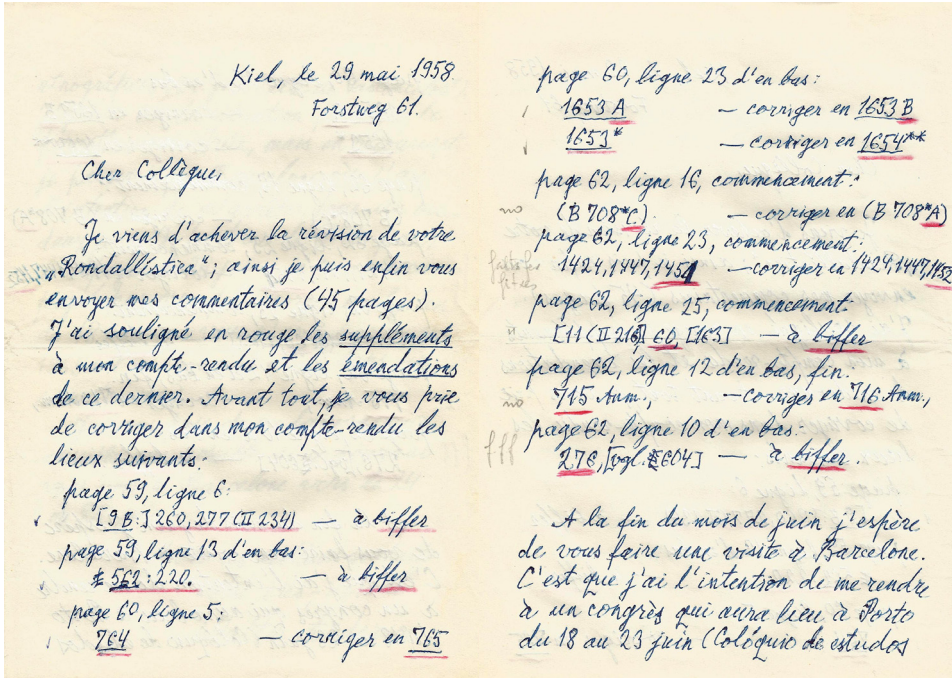 Kiel, le 29 mai 1958.
Forstweg 61.
Cher Collègue,
Je viens d'achever la révision de votre
„Rondallística"; ainsi je puis enfin vous
envoyer mes commentaires (45 pages).
J'ai souligné en rouge les suppléments
à mon compte-rendu et les émendations
de ce dernier. Avant tout, je vous prie
de corriger dans mon compte-rendu les
lieux suivants:
page 59, ligne 6:
[9B:] 260, 277 (II 234) — à biffer
page 59, ligne 13 d'en bas:
562: 220. — à biffer
page 60, ligne 5:
764 — corriger en 765
page 60, ligne 23 d'en bas:
1653 A — corriger en 1653 B
1653* — corriger en 1654**
page 62, ligne 16, commencement:
(B 708*C) — corriger en (B 708*A)
page 62, ligne 23, commencement:
1424, 1447, 1451 — corriger en 1424, 1447, 1452
page 62, ligne 25, commencement
[11 (II 216] 60, [163] — à biffer
page 62, ligne 12 d'en bas, fin:
715 Anm., — corriger en 716 Anm.,
page 62, ligne 10 d'en bas:
276, [vgl. 604] — à biffer.
A la fin du mois de juin j'espère
de vous faire une visite à Barcelone.
C'est que j'ai l'intention de me rendre
à un congrès qui aura lieu à Porto
du 18 au 23 juin (Colóquio de estudos